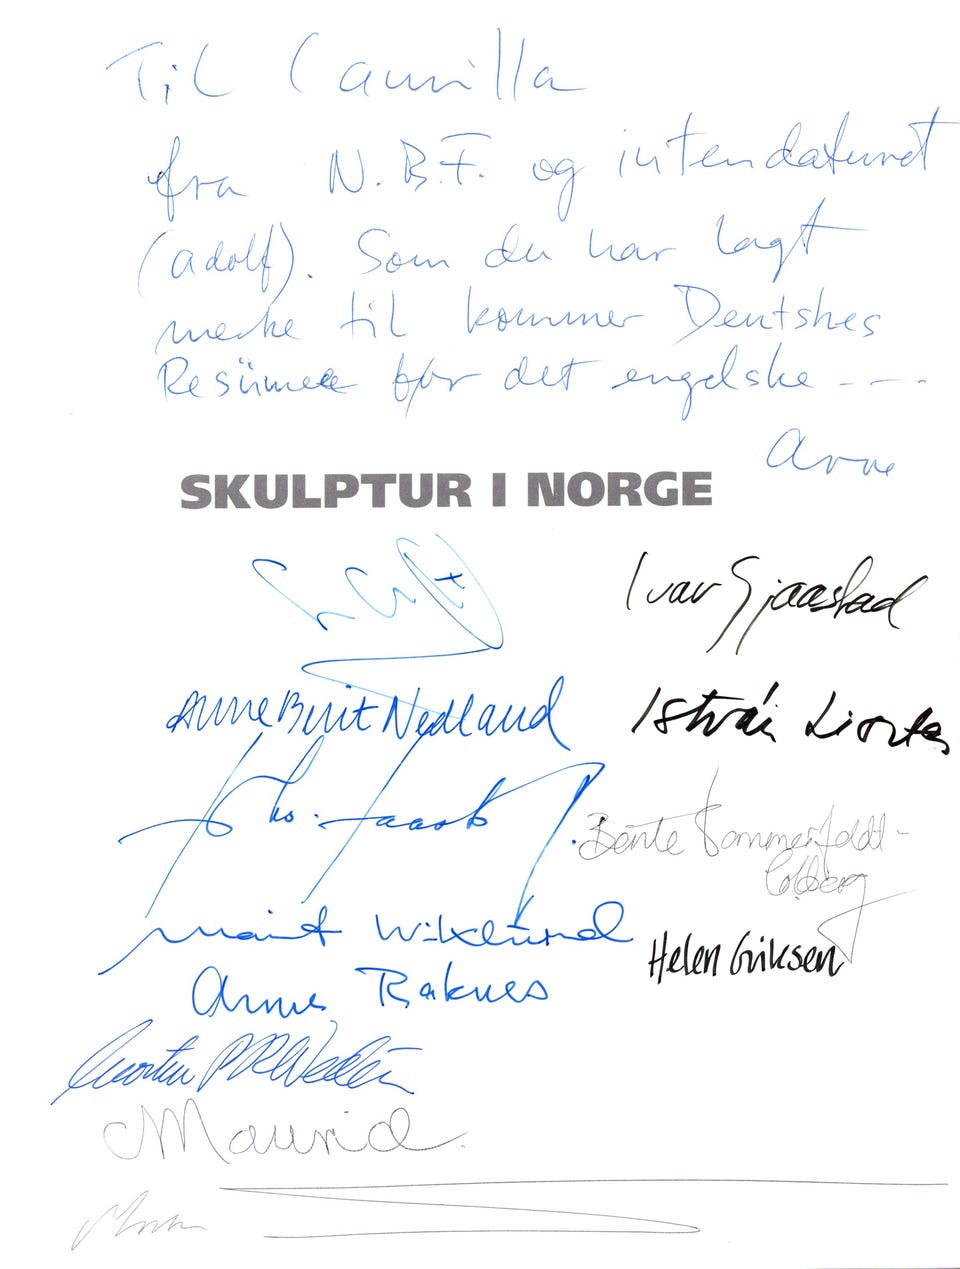 Til Camilla
fra N.B.F. og intendaturet
(adolf). Som du har lagt
merke til kommer Deutshes
Resümee før det engelske ----
Arne
SKULPTUR I NORGE
Ivar Sjaastad
Anne Britt Nedland
István Lisztes
Bente Sommerfeldt-
Colberg
Marit Wiklund
Helen Eriksen
Arne Raknes
Maurid